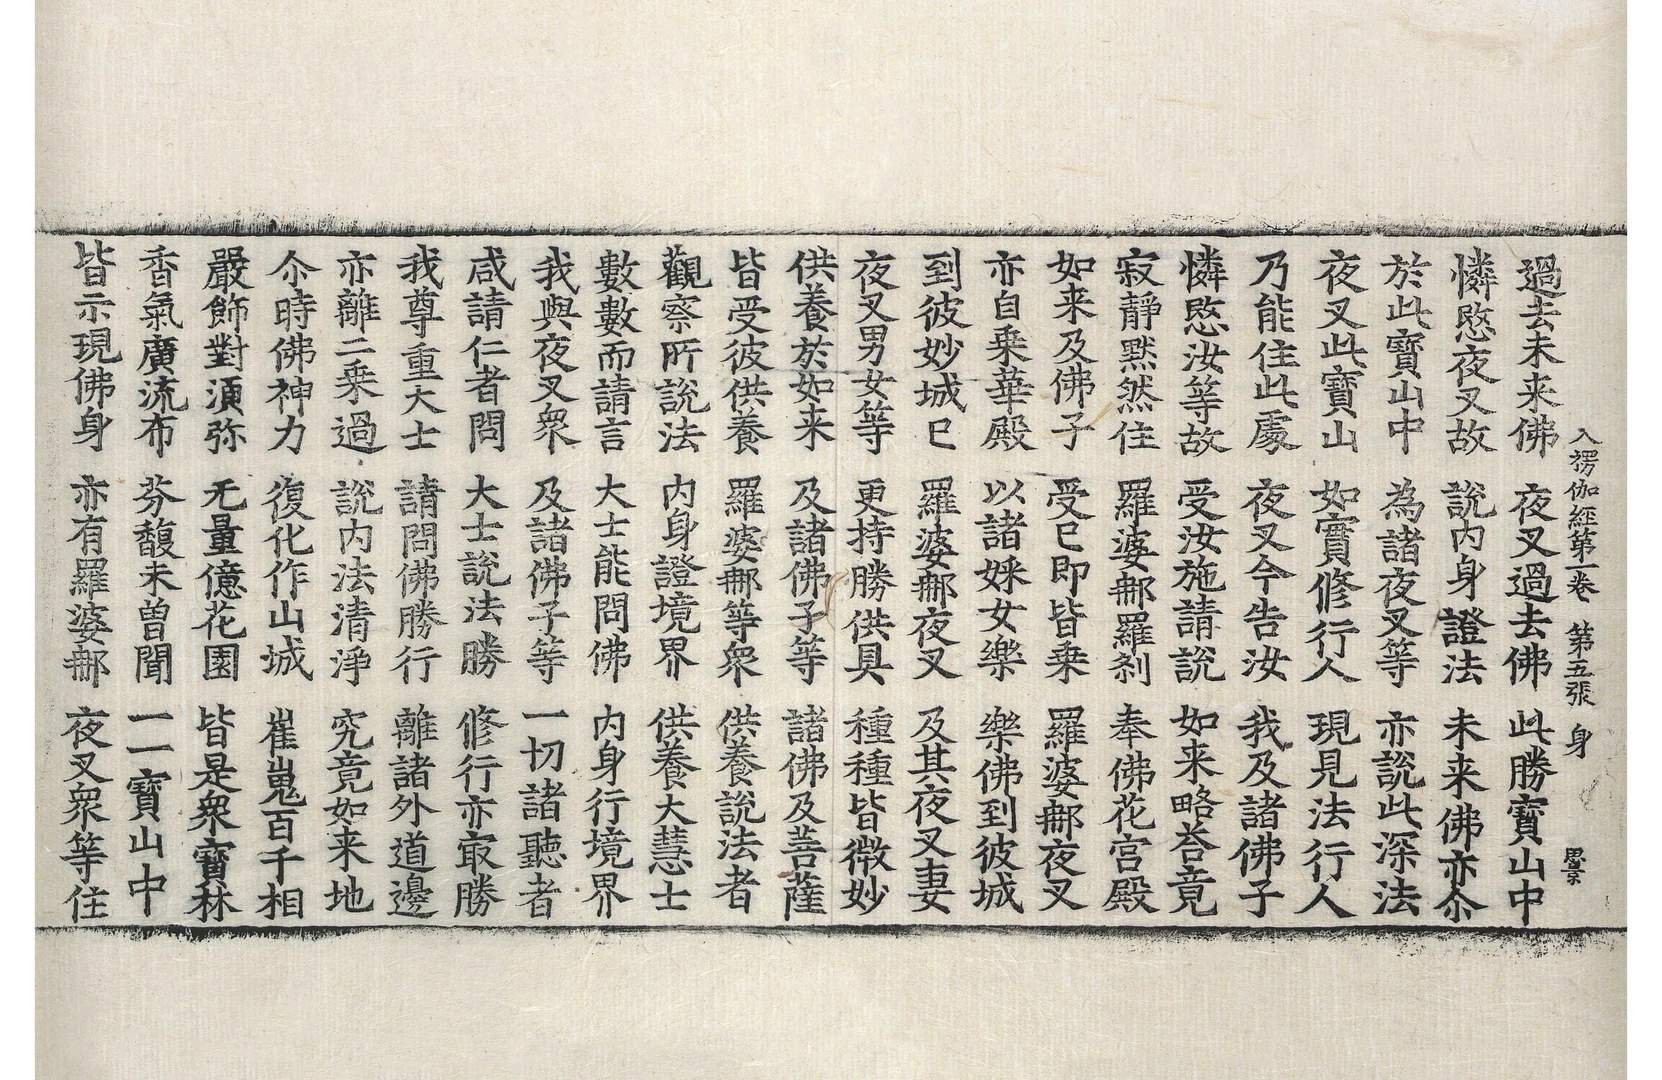 入楞伽經第一卷 第五張 身
過去未来佛 夜叉過去佛 此勝寶山中
憐愍夜叉故 說内身證法 未来佛亦尒
於此寶山中 為諸夜叉等 亦說此深法
夜叉此寶山 如實修行人 現見法行人
乃能住此處 夜叉今告汝 我及諸佛子
憐愍汝等故 受汝施請說 如来略荅竟
寂靜默然住 羅婆𨚗羅刹 奉佛花宫殿
如来及佛子 受已即皆乗 羅婆𨚗夜叉
亦自乗華殿 以諸婇女樂 樂佛到彼城
到彼妙城已 羅婆𨚗夜叉 及其夜叉妻
夜叉男女等 更持勝供具 種種皆微妙
供養於如来 及諸佛子等 諸佛及菩薩
皆受彼供養 羅婆𨚗等衆 供養說法者
觀察所說法 内身證境界 供養大慧士
數數而請言 大士能問佛 内身行境界
我與夜叉衆 及諸佛子等 一切諸聽者
咸請仁者問 大士說法勝 修行亦㝡勝
我尊重大士 請問佛勝行 離諸外道邊
亦離二乗過 說内法清淨 究竟如来地
尒時佛神力 復化作山城 崔嵬百千相
嚴飾對湏弥 无量億花園 皆是衆寶林
香氣廣流布 芬馥未曽聞 一一寶山中
皆示現佛身 亦有羅婆𨚗 夜叉衆等住